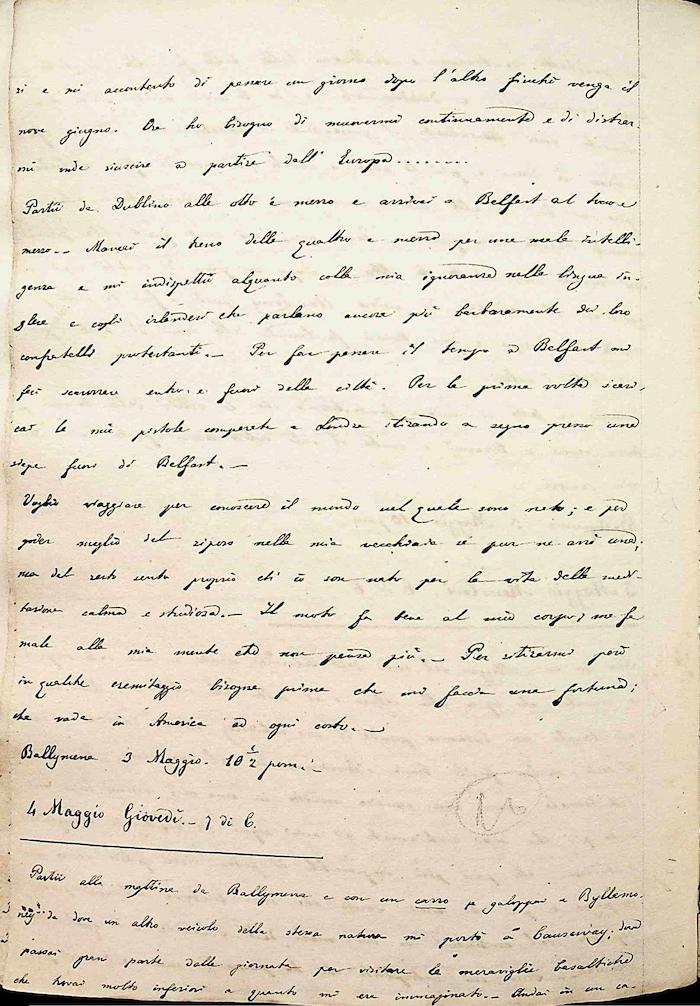 si e mi accontento di penare un giorno dopo l'altro finchè venga il
nove giugno. Ora ho bisogno di muovermi continuamente e di distrar-
mi onde riuscire a partire dall'Europa........
Partii da Dublino alle otto e mezzo e arrivai a Belfast al tocco e
mezzo._ Mancai il treno delle quattro e mezzo per una mala intelli-
genza e mi indispettii alquanto colla mia ignoranza nella lingua in-
glese e cogli irlandesi che parlano ancora più barbaramente dei loro
confratelli protestanti._ Per far passare il tempo a Belfast mi
feci scarrozzare entro e fuori della città. Per la prima volta scari-
cai le mie pistole comperate a Londra tirando a segno presso una
siepe fuori di Belfast._
Voglio viaggiare per conoscere il mondo nel quale sono nato; e per
goder meglio del riposo nella mia vecchiaia se pur ne avrò una;
ma del resto sento proprio ch'io son nato per la vita della medi-
tazione calma e studiosa._ Il moto fa bene al mio corpo; ma fa
male alla mia mente che non pensa più._ Per ritirarmi però
in qualche eremitaggio bisogna prima che mi faccia una fortuna;
che vada in America ad ogni costo._
Ballymena 3 Maggio. 10 1/2 pom._
4 Maggio Giovedì._ 7 di C.
Partii alla mattina da Ballymena e con un carro galoppai a Byllemo-
ney da dove un altro veicolo della stessa natura mi portò a Causeway; dove
passai gran parte della giornata per visitare le meraviglie basaltiche
che trovai molto inferiori a quanto mi ero immaginato._ Andai in un ca-